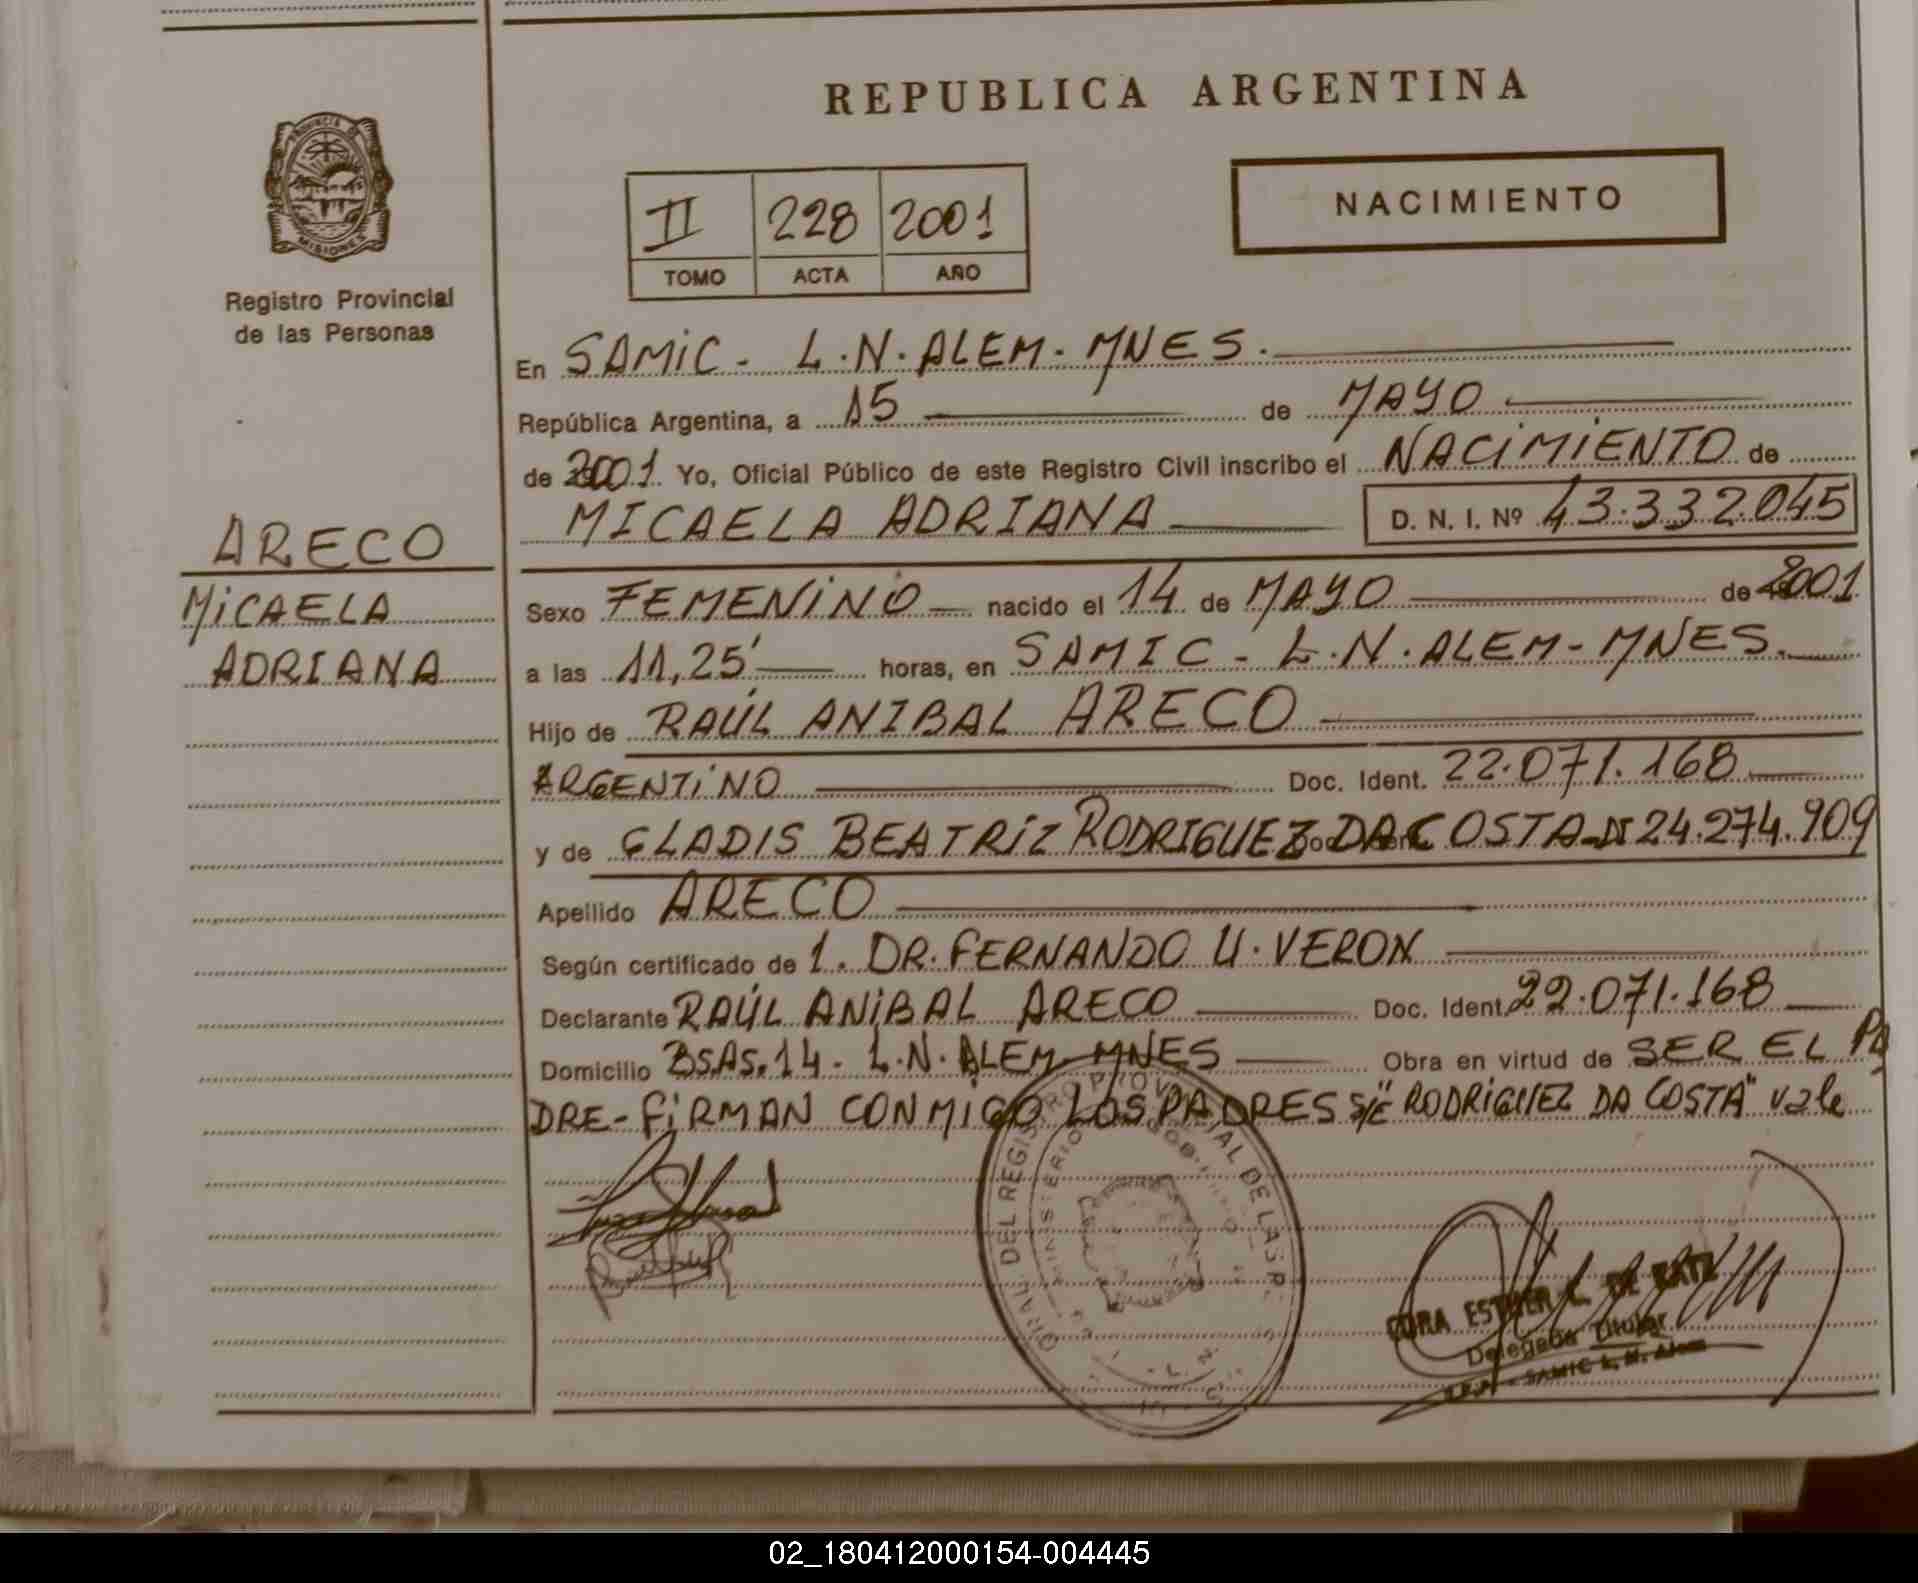 REPUBLICA ARGENTINA
PROVINCIA DE
MISIONES
Registro Provincial
de las Personas
II 228 2001
TOMO ACTA AÑO
NACIMIENTO
En SAMIC - L.N. ALEM - MNES.
República Argentina, a 15 de MAYO
de 2001 Yo, Oficial Público de este Registro Civil inscribo el NACIMIENTO de
MICAELA ADRIANA D. N. I. Nº 43.332.045
ARECO
MICAELA
ADRIANA
Sexo FEMENINO nacido el 14 de MAYO de 2001
a las 11,25' horas, en SAMIC - L.N. ALEM - MNES.
Hijo de RAÚL ANIBAL ARECO
ARGENTINO Doc. Ident. 22.071.168
y de GLADIS BEATRIZ RODRIGUEZ DA COSTA - DI 24.274.909
Apellido ARECO
Según certificado de 1. DR. FERNANDO U. VERON
Declarante RAÚL ANIBAL ARECO Doc. Ident. 22.071.168
Domicilio BS.AS. 14 - L.N. ALEM - MNES Obra en virtud de SER EL PA
DRE - FIRMAN CONMIGO LOS PADRES S/E "RODRIGUEZ DA COSTA" vale
GRAL. DEL REGISTRO PROVINCIAL DE LAS P.
MINISTERIO
CORA ESTHER L. DE RATZ
Delegada Titular
SAMIC L. N. Alem
02_180412000154-004445